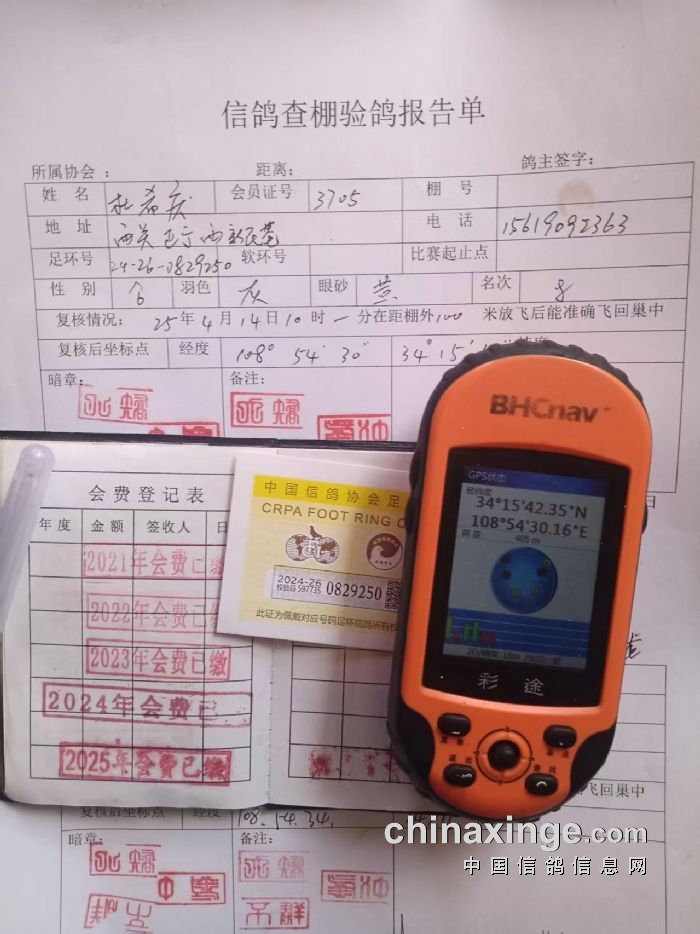 信鸽查棚验鸽报告单
所属协会： 距离： 鸽主签字：
姓 名 杜希庆 会员证号 3705 棚 号
地 址 电 话 15619092363
足环号 24-26-0829250 软环号 比赛起止点
性 别 羽色 灰 眼砂 黄 名次 8
复核情况： 25 年 4 月 14 日 10 时 一 分在距棚外 100 米放飞后能准确飞回巢中
复核后坐标点 经度 108° 54' 30" 34° 15'
暗章： 备注：
会费登记表
年度 金额 签收人 日
2021年会费已缴
2022年会费已缴
2023年会费已缴
2024年会费已
2025年会费已缴
中国信鸽协会足
CRPA FOOT RING
2024-26
校验码 597735 0829250
此证为佩戴对应号码足环信鸽所有权
BHCnav
GPS状态
经纬度
34°15'42.35"N
108°54'30.16"E
高度
405 m
彩途
飞回巢中
复核后坐标点 经度 108.54.34.
暗章： 备注：
chinaxinge.com
中国信鸽信息网